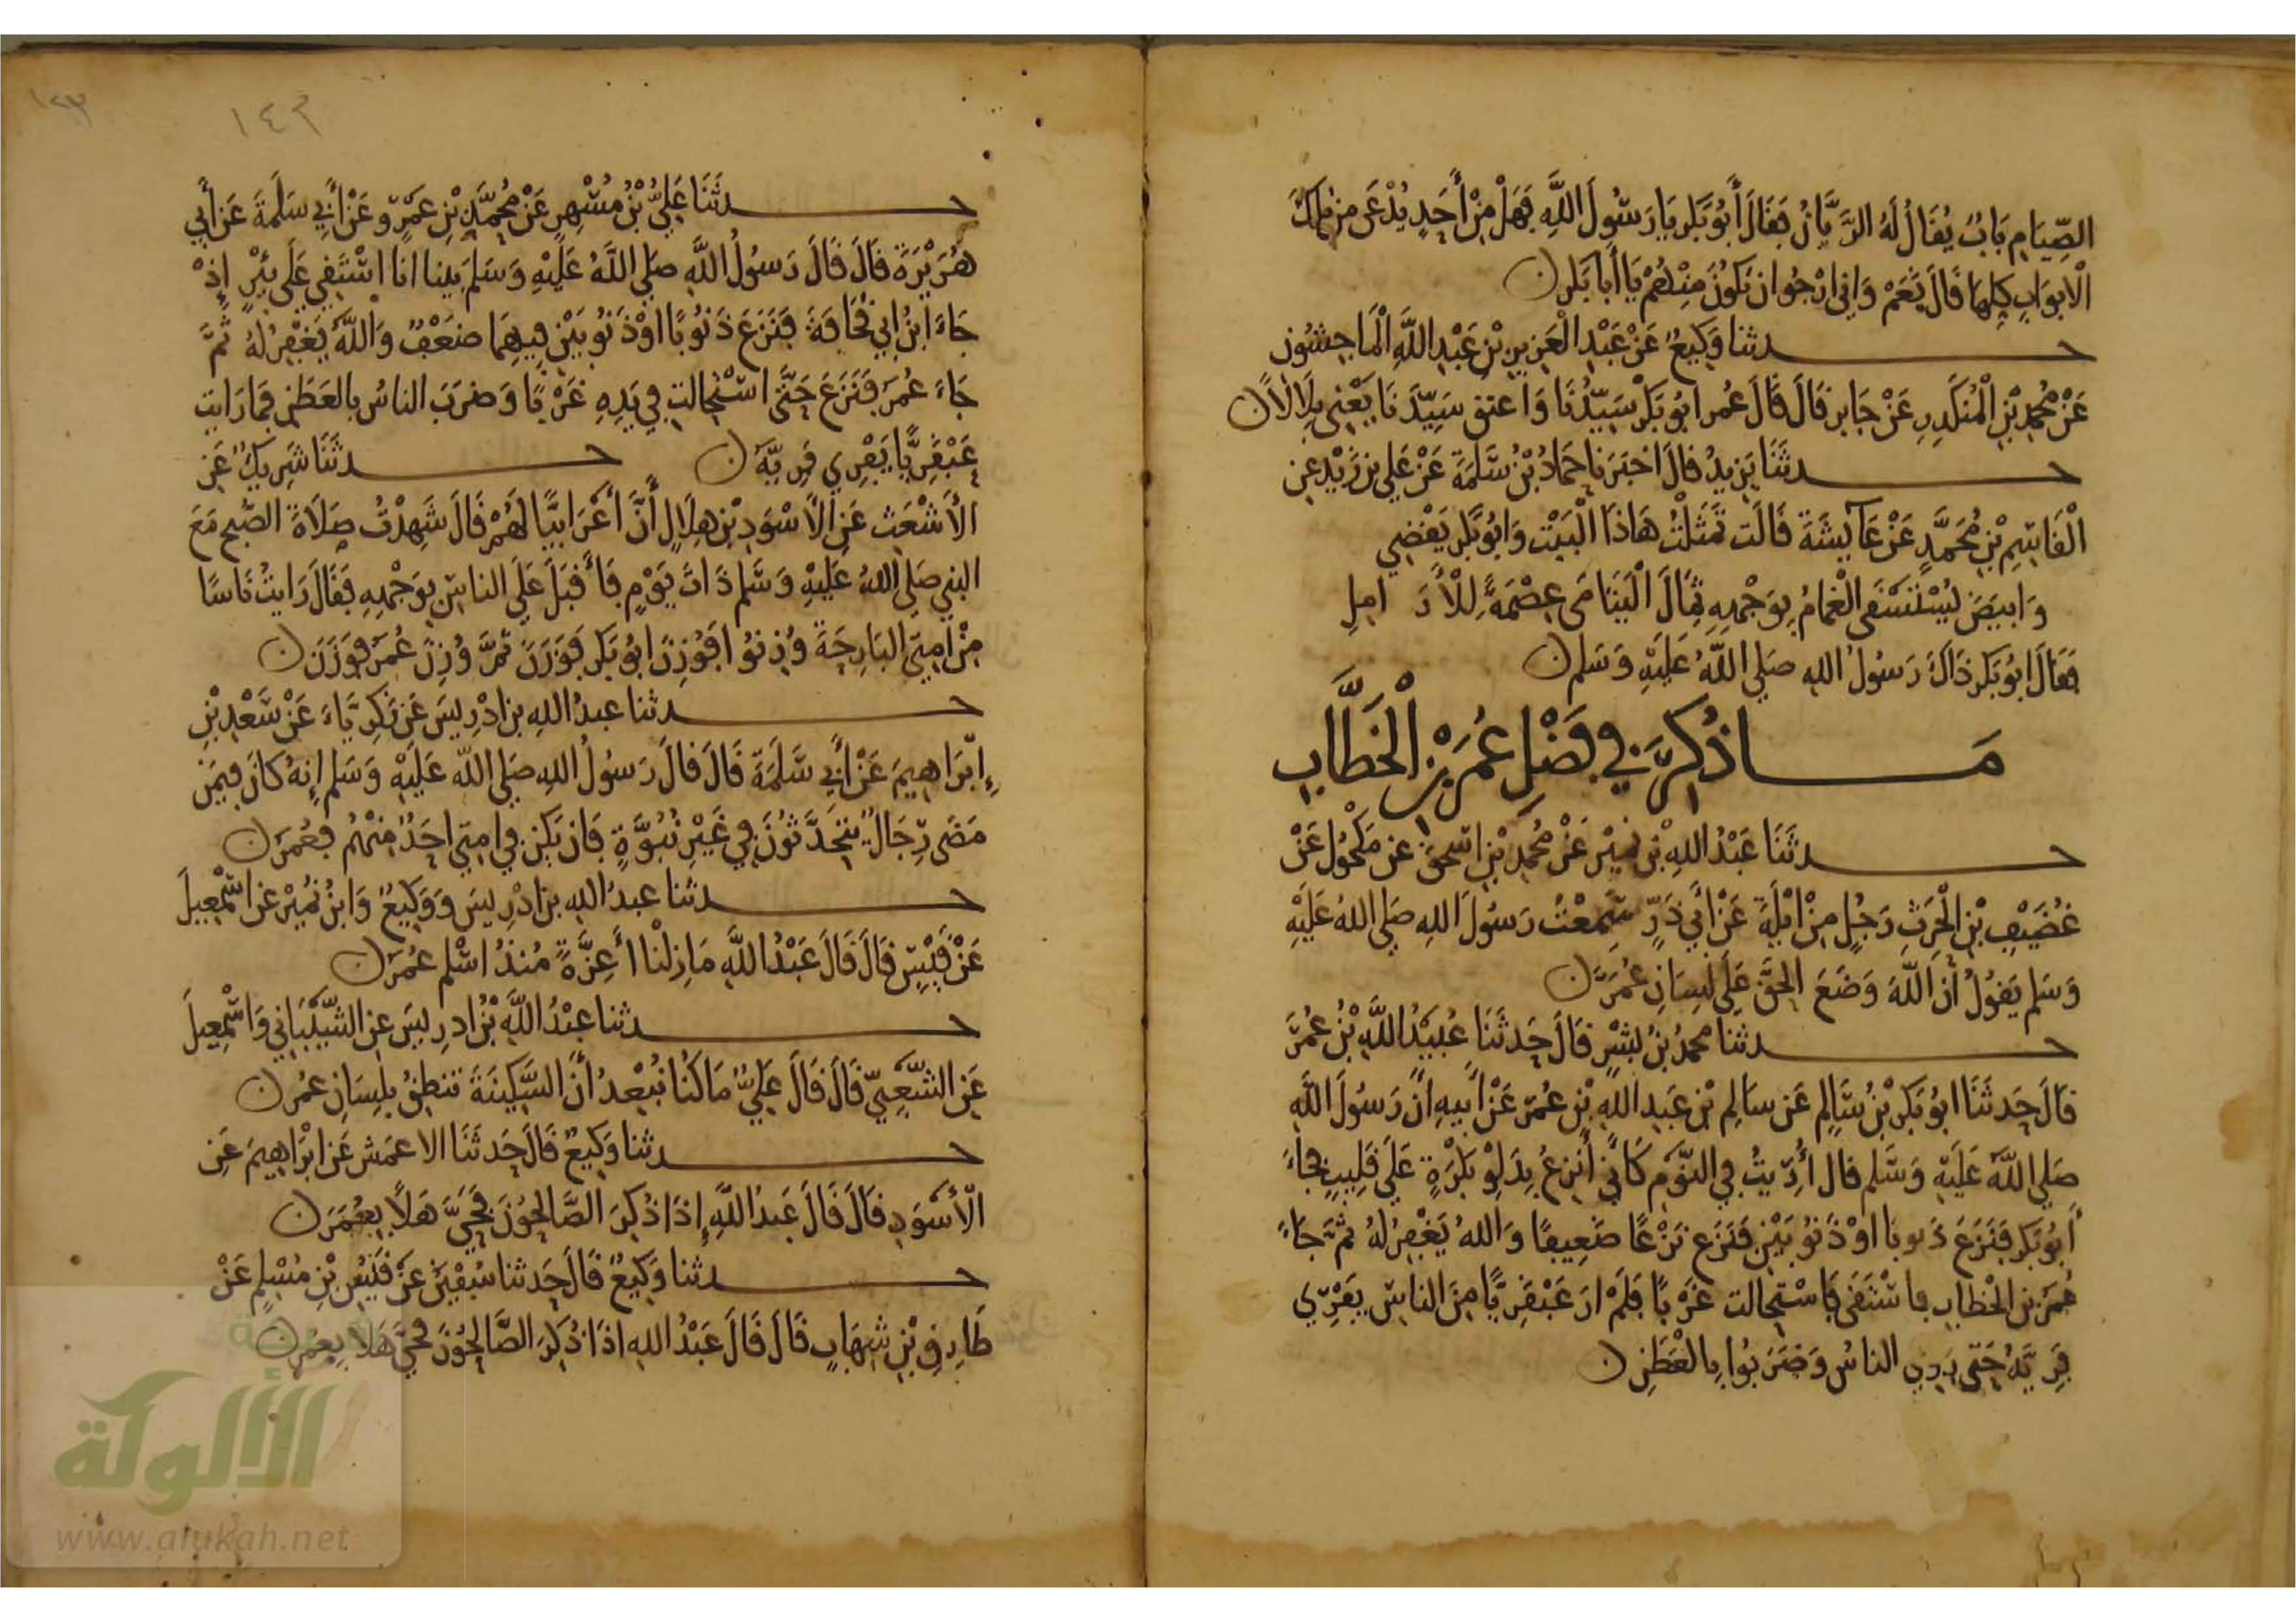 الصِّيَامِ بَابٌ يُقَالُ لَهُ الرَّيَّانُ فَقَالَ أَبُو بَكْرٍ يَا رَسُولَ اللَّهِ فَهَلْ مِنْ أَحَدٍ يُدْعَى مِنْ تلك
الْأَبوَابِ كِلِهَا قَالَ نَعَمْ وَاني ارْجُوا ان تَكُونَ مِنْهُمْ يَا أَبَا بَكرٍ
حدثنا وَكِيعٌ عَنْ عَبْدِ الْعَزِيزِ بْنِ عَبْدِ اللَّهِ الْمَاجِشُونِ
عَنْ مُحَمدِ بْنِ الْمُنْكَدِرِ عَنْ جَابرٍ قَالَ قَالَ عُمر ابُو بَكْرٍ سَيِّدُنَا وَاعتق سَيِّدَنَا يَعْنِي بِلَالاً
حدثَنَا يَزِيدُ قالَ اخبَرَنا حَمَادُ بْنُ سَلَمَةَ عَنْ عَلي بن زَيْدٍ عن
الْقَاسِمِ بْنِ مُحَمَّدٍ عَنْ عَائِشَةَ قَالَت تَمَثَلْتُ هَاذَا الْبَيْتَ وَابُو بَكْر يَقْضِي
وَابيَضَ يُسْتَسْقَى الْغَمَامُ بِوَجْهِهِ ثِمَالَ الْيَتَامَى عِصْمَةً لِلْأَرَامِلِ
فَقَالَ ابُو بَكرٍ ذَاكَ رَسُولُ الله صَلى اللَّهُ عَلَيْهِ وَسَلم
مَا ذُكِرَ فِي فَضْلِ عُمَرَ بْنِ الْخَطَّابِ
حدثَنَا عَبْدُ اللهِ بْنُ نُمَيْرٍ عَنْ مُحَمدِ بْنِ اسحق عن مَكْحُولٍ عَنْ
غُضَيْفِ بْنِ الْحَرِثِ رَجُلٍ مِنْ ايْلَةَ عَنْ أَبي ذَرٍّ سَمِعْتُ رَسُولَ اللهِ صَلى اللهُ عَلَيْهِ
وَسَلم يَقُولُ أن اللَّهَ وَضَعَ الحَقَّ عَلَى لِسَانِ عُمَرَ
حدثنا محمدُ بْنُ بِشْرٍ قَالَ حَدثَنَا عُبَيْدُ اللَّهِ بْنُ عُمَرَ
قالَ حَدثَنَا ابُو بَكرِ بْنُ سَالِمٍ عَن سَالِمِ بْنِ عَبدِ اللَّهِ بْنِ عُمَرَ عَنْ أَبِيهِ أَنَّ رَسُولَ اللَّهِ
صَلى اللَّهُ عَلَيْهِ وَسَلم قالَ أُرِيتُ فِي النَّوْمِ كَأَنِّي أَنزعُ بِدَلوِ بَكْرَةٍ عَلَى قَلِيبٍ فجاءَ
أَبُو بَكرٍ فَنَزَعَ ذنوبا اوْ ذَنُوبَيْنِ فَنَزَع نَزْعًا ضَعِيفًا وَاللهُ يَغْفِرُ لَهُ ثمَّ جَاءَ
عُمَرُ بن الخطابِ فاسْتَقَى فَاسْتحالت غَرْبًا فَلَمْ ارَ عَبْقَرِيًّا مِنَ الناسِ يَفْرِي
فَرِيَّهُ حَتى رَوِي الناسُ وَضَرَبُوا بِالْعَطَنِ
١٤٣
حدثَنَا عَلِيُّ بْنُ مُسْهِرٍ عَنْ مُحَمَّدِ بْنِ عَمْرٍو عَنْ أَبِي سَلَمَةَ عَن أَبي
هُرَيْرَةَ قالَ قَالَ رَسُولُ اللَّهِ صَلى اللَّهُ عَلَيْهِ وَسَلمَ بَينا انَا اسْتَقِي عَلَى بِئْرٍ إِذْ
جَاءَ ابنُ ابي قُحَافَةَ فَنَزَعَ ذَنُوبًا اوْ ذَنُوبَيْنِ فِيهِمَا ضَعْفٌ وَاللَّهُ يَغْفِرُ لَهُ ثُمَّ
جَاءَ عُمَرُ فَنَزَعَ حَتَّى اسْتحالت فِي يَدِهِ غَرْبًا وَضَرَبَ الناسُ بالعَطَنِ فَمَا رَايت
عَبْقَرِيًّا يَفْرِي فَرِيَّهُ حدثَنَا شَرِيكٌ عَن
الأَشْعَثِ عَنِ الأَسْوَدِ بْنِ هِلَالٍ أَنَّ أَعْرَابِيًّا لَهُمْ قَالَ شَهِدْتُ صَلَاةَ الصّبح مَعَ
النبي صَلى اللهُ عَلَيْهِ وَسَلم ذَاتَ يَوْمٍ فَأَقْبَلَ عَلَى الناسِ بِوَجْهِهِ فَقَالَ رَايتُ نَاسًا
مِنْ امتِي البَارِحَةَ وُزِنُوا فَوُزِنَ ابُو بَكرٍ فَوَزَنَ ثُمَّ وُزِنَ عُمَرُ فوَزَنَ
حدثنا عبدُ اللهِ بن ادْرِيسَ عَن زَكَرِيَّاءَ عَنْ سَعْدِ بْنِ
إِبْرَاهِيمَ عَنْ أَبي سَلَمَةَ قَالَ قالَ رَسُولُ اللهِ صَلى اللَّه عَلَيْهِ وَسَلم إِنهُ كانَ فِيمَن
مَضَى رِجَالٌ يَتَحَدَّثُونَ فِي غَيْرِ نُبُوَّةٍ فَان يَكن في امتي احَدٌ مِنْهُم فَعُمَرُ
حدثنا عبدُ اللهِ بن ادْرِيسَ وَوَكِيعٌ وَابنُ نُمَيْرٍ عن اسْمعِيلَ
عَنْ قَيْسٍ قالَ قَالَ عَبْدُ اللَّهِ مَا زِلْنَا أَعِزَّةً مُنذُ اسْلم عُمَرُ
حدثنا عبْدُ اللَّهِ بْنُ ادرِيسَ عن الشَّيْبَانِي وَاسْمعِيلَ
عَنِ الشَّعْبِيِّ قَالَ قَالَ عَلِيٌّ مَا كُنا نُبْعِدُ أَنَّ السَّكِينَةَ تنطِقُ بِلِسَانِ عُمر
حدثنا وَكِيعٌ قَالَ حَدثَنَا الاعمَش عَن ابْرَاهِيمَ عَنِ
الْأَسْوَدِ قالَ قَالَ عَبدُ اللَّهِ إِذَا ذُكِرَ الصَّالِحُونَ فَحَيَّ هَلًا بِعُمَرَ
حدثنا وَكِيعٌ قَالَ حَدثنا سُفْيَن عَنْ قَيْسِ بْنِ مُسْلِمٍ عَنْ
طَارِقِ بْنِ شِهَابٍ قَالَ قَالَ عَبْدُ اللهِ اذَا ذُكِرَ الصَّالِحُونَ فحيَّ هَلا بِعُمر
الألوكة
www.alukah.net